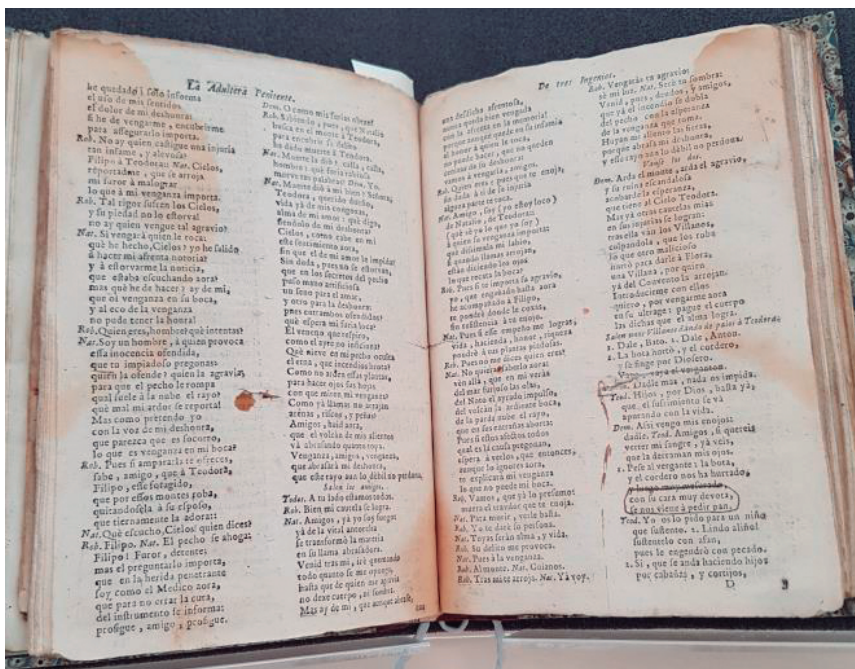 La Adultera Penitente.
he quedado; solo informa
el uso de mis sentidos
el dolor de mi deshonra:
si he de vengarme, encubrirme
para assegurarlo importa.
Rob. No ay quien castigue una injuria
tan infame, y alevosa?
Filipo à Teodora: Nat. Cielos,
reportadme, que se arroja
mi furor à malograr
lo que à mi venganza importa.
Rob. Tal rigor sufren los Cielos,
y su piedad no lo estorva!
no ay quien vengue tal agravio?
Nat. Si vengarà quien le toca:
què he hecho, Cielos? yo he salido
à hacer mi afrenta notoria?
y à estorvarme la noticia,
que estaba escuchando aora?
mas què he de hacer? ay de mi,
que oì venganza en su boca,
y al eco de la venganza
no pude tener la honra!
Rob. Quien eres, hombre? què intentas?
Nat. Soy un hombre, à quien provoca
essa inocencia ofendida,
que tu impiadoso pregonas:
quien la ofende? quien la agravia,
para que el pecho le rompa
qual suele à la nube el rayo?
què mal mi ardor se reporta!
Mas como pretendo yo
con la voz de mi deshonra,
que parezca que es socorro,
lo que es venganza en mi boca?
Rob. Pues si ampararla te ofreces,
sabe, amigo, que à Teodora,
Filipo, esse foragido,
que por essos montes roba,
quitandosela à su esposo,
que tiernamente la adora:
Nat. Què escucho, Cielos! quien dices?
Rob. Filipo. Nat. El pecho se ahoga:
Filipo! Furor, detente:
mas el preguntarlo importa,
que en la herida penetrante
soy como el Medico aora,
que para no errar la cura,
del instrumento se informa:
prosigue, amigo, prosigue.
Dem. O como mis furias obran!
Rob. Sabiendo, pues, que Natalio
busca en el monte à Teodora,
para encubrir su delito
ha dado muerte à Teodora.
Nat. Muerte la diò? calla, calla,
hombre! què furia rabiosa
mueve tus palabras? Dem. Yo.
Nat. Muerte diò à mi bien? Señora,
Teodora, querido dueño,
vida yà de mis congojas,
alma de mi amor: què digo,
siendolo de mi deshonra?
Cielos, como cabe en mi
este sentimiento aora,
sin que el de mi amor le impida?
Sin duda, pues no se estorvan,
que en los secretos del pecho
puso mano artificiosa
un seno para el amar,
y otro para la deshonra:
pues entrambos ofendidos?
què espera mi furia loca?
El veneno que respiro,
como el ayre no inficiona?
Què nieve en mi pecho oculta
el etna, que incendios brota?
Como no arden estas plantas,
para hacer ojos sus hojas
con que miren mi venganza?
Como yà llamas no arrojan
arenas, riscos, y peñas?
Amigos, huid aora,
que el volcàn de mis alientos
và abrasando quanto topa.
Venganza, amigos, venganza,
que abrasarà mi deshonra,
que este rayo aun lo dèbil no perdona.
Salen los amigos.
Todos. A tu lado estamos todos.
Rob. Bien mi cautela se logra.
Nat. Amigos, yà yo soy fuego:
yà de la vital antorcha
se transformò la materia
en su llama abrasadora.
Venid tras mi, irè quemando
todo quanto se me oponga,
hasta que de quien me agravia
no dexe cuerpo, ni sombra.
Mas ay de mi, que aunque alcance,
De tres Ingenios.
una desdicha afrentosa,
nunca queda bien vengada
con la afrenta en la memoria!
porque aunque quede en su infamia
el honor à quien le toca,
no puede hacer, que no queden
cenizas de su deshonra:
vamos à vengarla, amigos.
Rob. Quien eres? pues que te enoja,
sin duda à ti de la injuria
alguna parte te toca.
Nat. Amigo, soy (yo estoy loco)
de Natalio, de Teodora:
(què sè yo lo que yo soy)
à quien su venganza importa:
què dissimula mi labio,
si quando llamas arrojan,
estàn diciendo los ojos
lo que recata la boca?
Rob. Pues si te importa su agravio,
yo, que engañado hasta aora
he acompañado à Filipo,
te pondrè donde le cojas,
sin resistencia à tu enojo.
Nat. Pues si esse empeño me logras,
vida, hacienda, honor, riqueza
pondrè à tus plantas piadosas.
Rob. Pues no me dices quien eres?
Nat. No quieras saberlo aora:
vèn allà, que en mi veràs
del mar furioso las olas,
del Noto el ayrado impulso,
del volcàn la ardiente boca,
de la parda nube el rayo,
que en sus entrañas aborta:
Pues si estos afectos todos
qual es la causa pregonan,
espera à verlos, que entonces,
aunque lo ignores aora,
te explicarà mi venganza
lo que no puede mi boca.
Rob. Vamos, que yà lo presumo:
muera el traydor que te enoja.
Nat. Para morir, verle basta.
Rob. Yo te darè su persona.
Nat. Tuyas seràn alma, y vida.
Rob. Su delito me provoca.
Nat. Pues à la venganza.
Rob. Al monte. Nat. Guianos.
Rob. Tras mi te arroja. Nat. Yà voy.
Rob. Vengaràs tu agravio:
sè mi luz. Nat. Serè tu sombra:
Venid, pues, deudos, y amigos,
que yà el incendio se dobla
del pecho con la esperanza
de la venganza que toma.
Huyan mi aliento las fieras,
porque abrasa mi deshonra,
y esse rayo aun lo dèbil no perdona.
Vanse los dos.
Dem. Arda el monte, arda el agravio,
y su ruina escandalosa
acobarde la esperanza,
que tiene al Cielo Teodora.
Mas yà otras cautelas mias
en sus injurias se logran:
tras ella vàn los Villanos,
culpandola, que los robe
lo que otro malicioso
hurtò para darle à Flora,
una Villana, por quien
yà del Convento la arrojan.
Introducirme con ellos
quiero, por vengarme aora
en su ultrage: pague el cuerpo
las dichas que el alma logra.
Salen unos Villanos dando de palos à Teodora.
1. Dale, Bato. 2. Dale, Anton.
2. La boca hurtò, y el cordero,
y se finge por Diosero.
Dadle mas, nada os impida.
Teod. Hijos, por Dios, basta yà,
que el sufrimiento se và
apurando con la vida.
Dem. Assi vengo mis enojos:
dadle. Teod. Amigos, si quereis
verter mi sangre, yà veis,
que la derraman mis ojos.
1. Pese al vergante: la bota,
y el cordero nos ha hurtado,
con su cara muy devota,
se nos viene à pedir pan.
Teod. Yo os lo pido para un niño
que sustento. 2. Lindo aliño!
sustentelo con afan,
pues le engendrò con pecado.
2. Si, que se anda haciendo hijos
por cabañas, y cortijos,
D